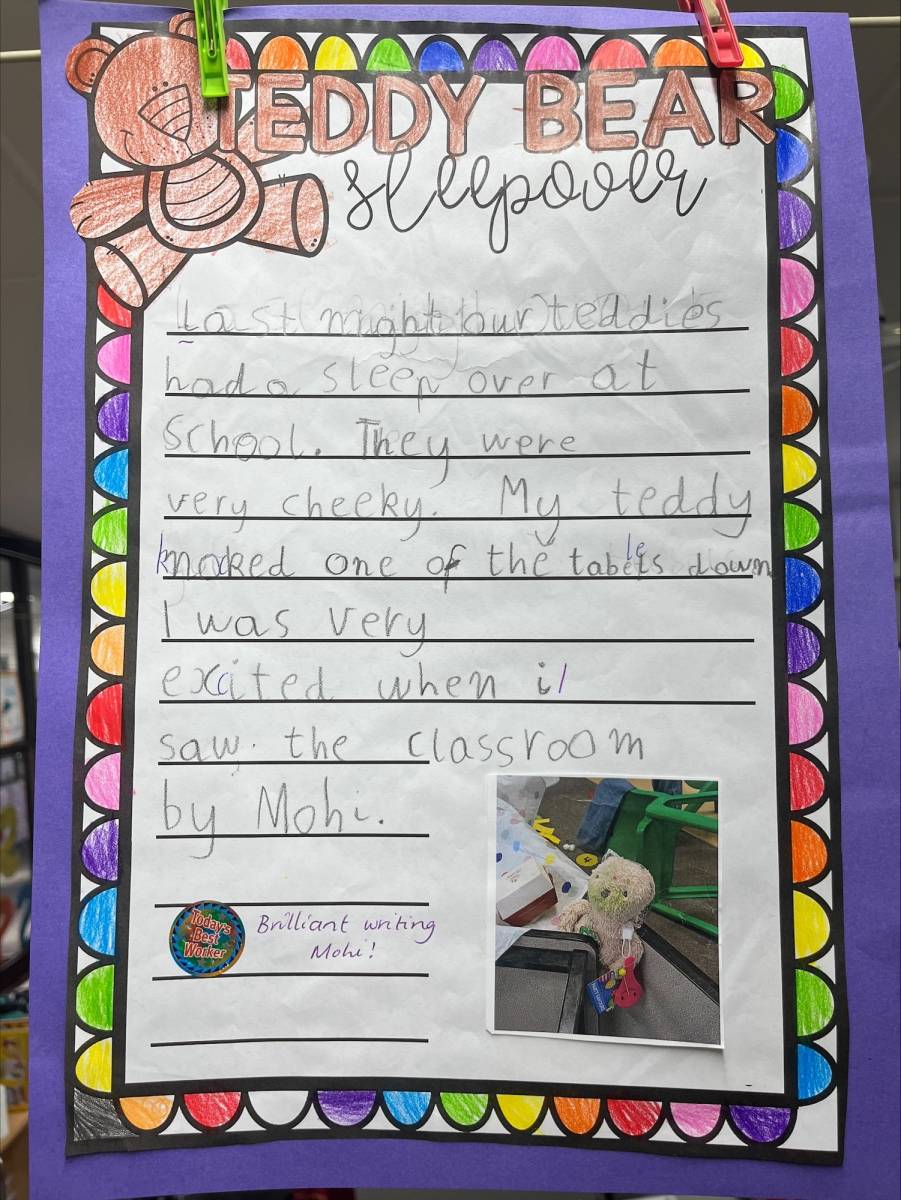 TEDDY BEAR
sleepover
Last night our teddies
had a sleep over at
School. They were
very cheeky. My teddy
knocked one of the tables down
I was very
excited when i
saw. the classroom
by Mohi.
Today's
Best
Worker
Brilliant writing
Mohi!